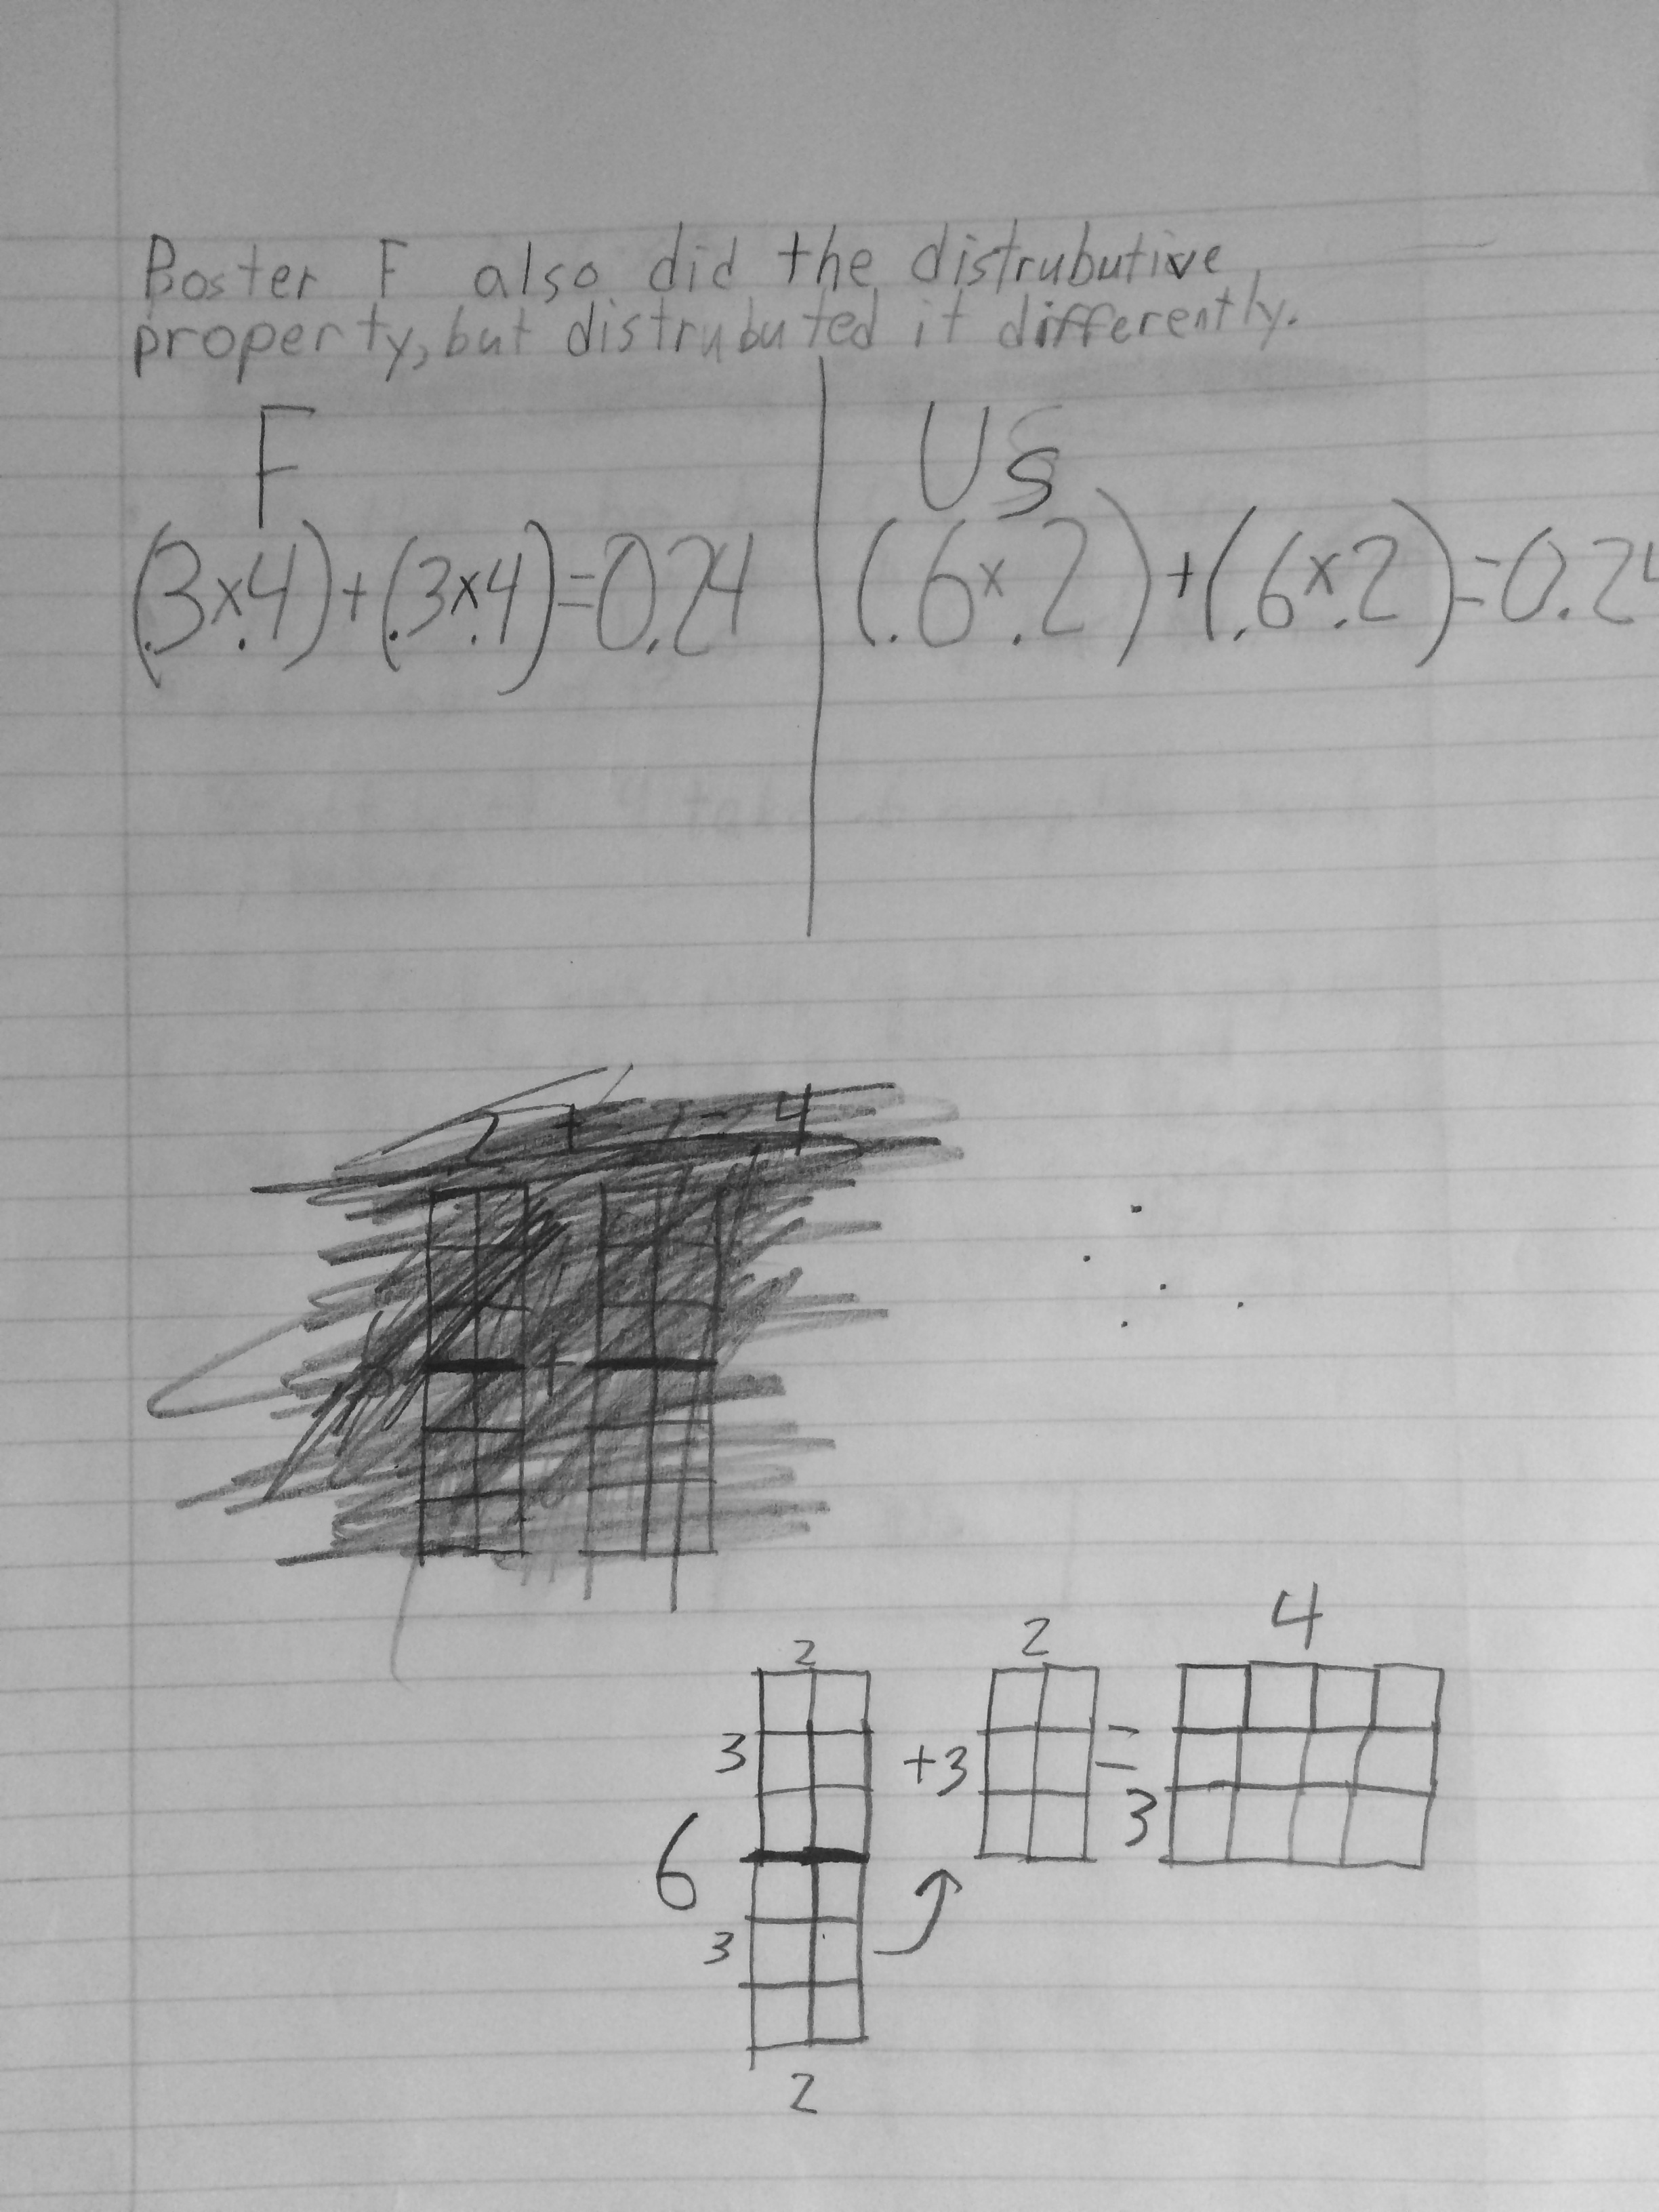 Poster F also did the distrubutive
property, but distrubuted it differently.
F
(.3x.4)+(.3x.4)=0.24
Us
(.6x.2)+(.6x.2)=0.24
2 + 4
+
2
3
6
3
2
+3
2
=
3
4